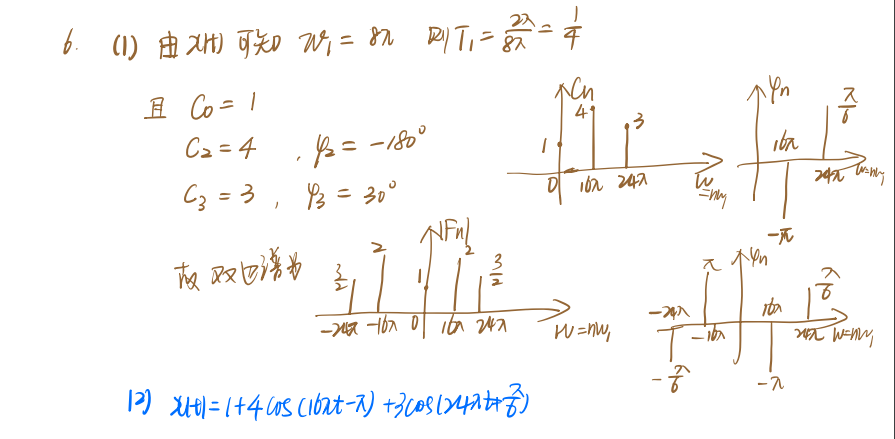 6. (1) 由 x(t) 可知 W₁ = 8π 则 T₁ = 2π/8π = 1/4
且 C₀ = 1
C₂ = 4 , φ₂ = -180°
C₃ = 3 , φ₃ = 30°
Cn
4
3
1
0 16π 24π W=nw₁
φn
π/6
16π
24π W=nw₁
-π
故 双边谱为
|Fn|
3/2 2 1 2 3/2
-24π -16π 0 16π 24π W=nw₁
φn
π
π/6
-24π -16π 16π 24π W=nw₁
-π/6
-π
(2) x(t)=1+4cos(16πt-π)+3cos(24πt+π/6)